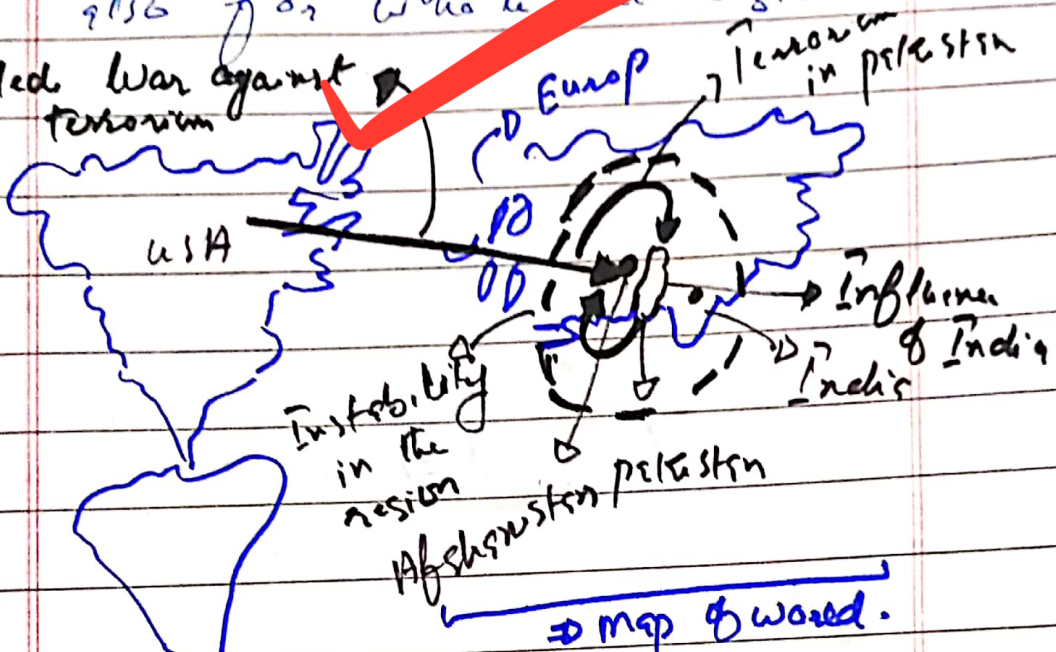 also for
led War against
terrorism
Europ
Terrorism
in pakistan
USA
Influence
of India
India
Instability
in the
region
Afghanistan
pakistan
⇒ Map of world.